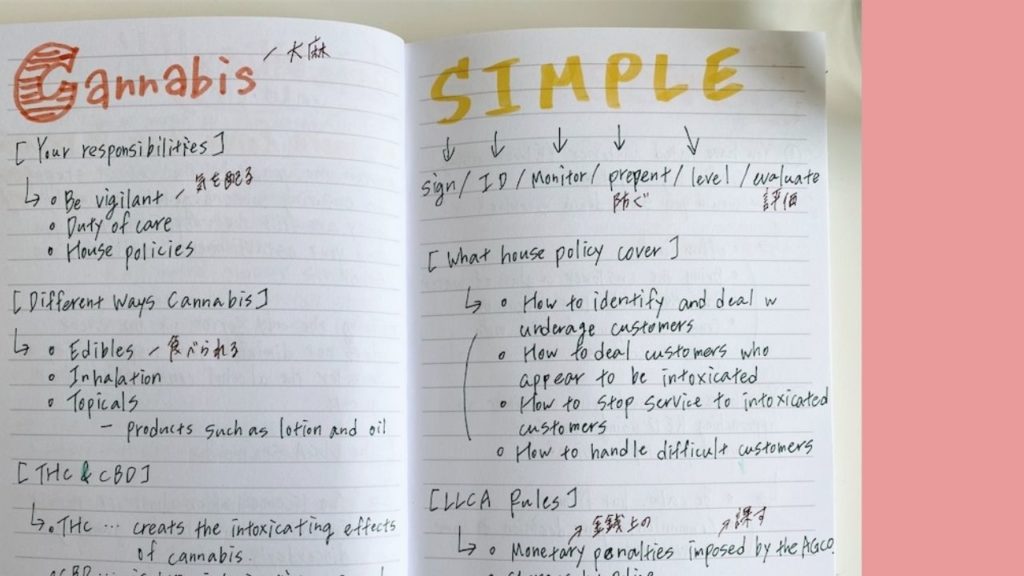 Cannabis / 大麻
[Your responsibilities]
↳ • Be vigilant / 気を配る
• Duty of care
• House policies
[Different Ways Cannabis]
↳ • Edibles / 食べられる
• Inhalation
• Topicals
- products such as lotion and oil
[THC & CBD]
↳ • THC ... creats the intoxicating effects
of cannabis.
• CBD
SIMPLE
↓ ↓ ↓ ↓ ↓
sign / ID / Monitor / prepent / level / evaluate
防ぐ 評価
[What house policy cover]
↳ • How to identify and deal w
underage customers
• How to deal customers who
appear to be intoxicated
• How to stop service to intoxicated
customers
• How to handle difficult customers
[LLCA Rules]
↗ 金銭上の ↗ 課す
↳ • Monetary penalties imposed by the AGCO